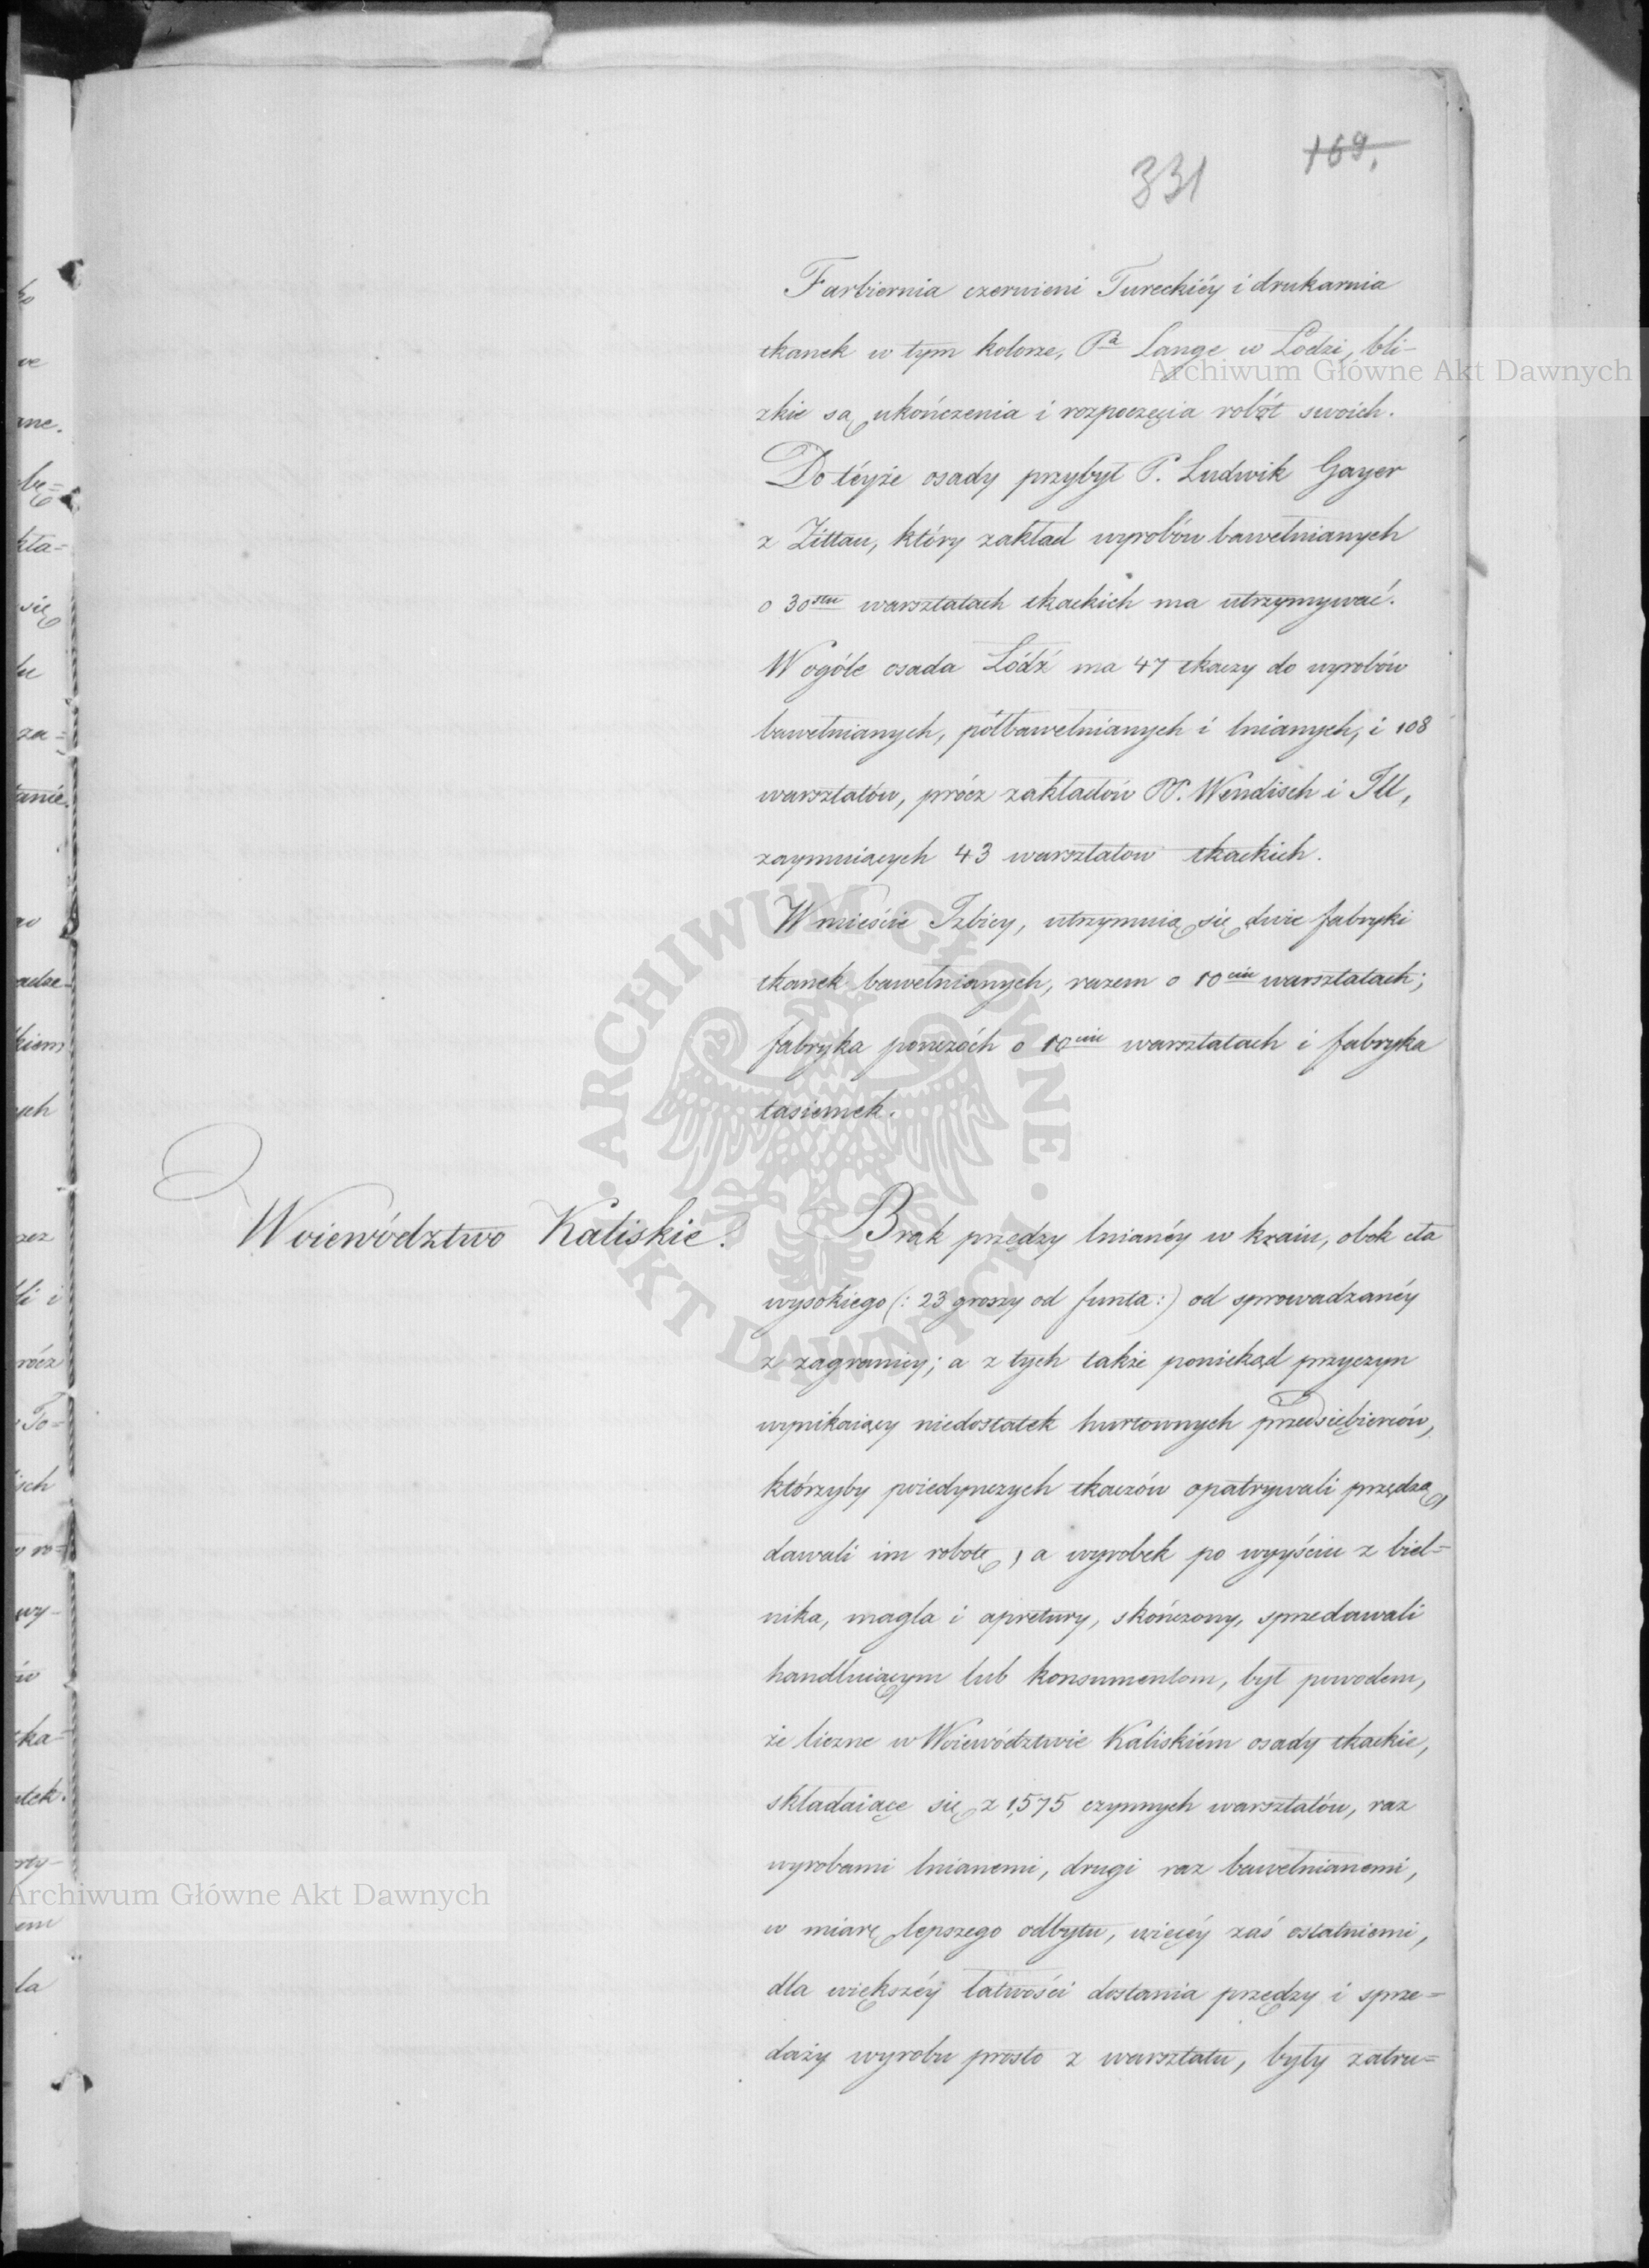 331 169.
Farbiernia czerwieni Tureckiéy i drukarnia
tkanek w tym kolorze, Pa Lange w Łodzi, bli-
zkie są ukończenia i rozpoczęcia robót swoich.
Do téyże osady przybył P. Ludwik Gayer
z Zittau, który zakład wyrobów bawełnianych
o 30stu warsztatach tkackich ma utrzymywać.
W ogóle osada Łódź ma 47 tkaczy do wyrobów
bawełnianych, półbawełnianych i lnianych, i 108
warsztatów, prócz zakładów PP. Wendisch i Ill,
zaymuiących 43 warsztatow tkackich.
W mieście Izbicy, utrzymuią się dwie fabryki
tkanek bawełnianych, razem o 10ciu warsztatach;
fabryka ponczóch o 10ciu warsztatach i fabryka
tasiemek.
Woiewództwo Kaliskie.
Brak przędzy lnianéy w kraiu, obok cła
wysokiego (: 23 groszy od funta :) od sprowadzanéy
z zagranicy; a z tych także poniekąd przyczyn
wynikaiący niedostatek hurtownych przedsiębierców,
którzyby poiedynczych tkaczów opatrywali przędzą,
dawali im robotę, a wyrobek po wyyściu z biel=
nika, magla i apretury, skończony, sprzedawali
handluiącym lub konsumentom, był powodem,
że liczne w Woiewództwie Kaliskiém osady tkackie,
składaiące się z 1,575 czynnych warsztatów, raz
wyrobami lnianemi, drugi raz bawełnianemi,
w miarę lepszego odbytu, więcéy zaś ostatniemi,
dla większéy łatwości dostania przędzy i sprze=
daży wyrobu prosto z warsztatu, były zatru=
Archiwum Główne Akt Dawnych
Archiwum Główne Akt Dawnych
ARCHIWUM GŁÓWNE AKT DAWNYCH